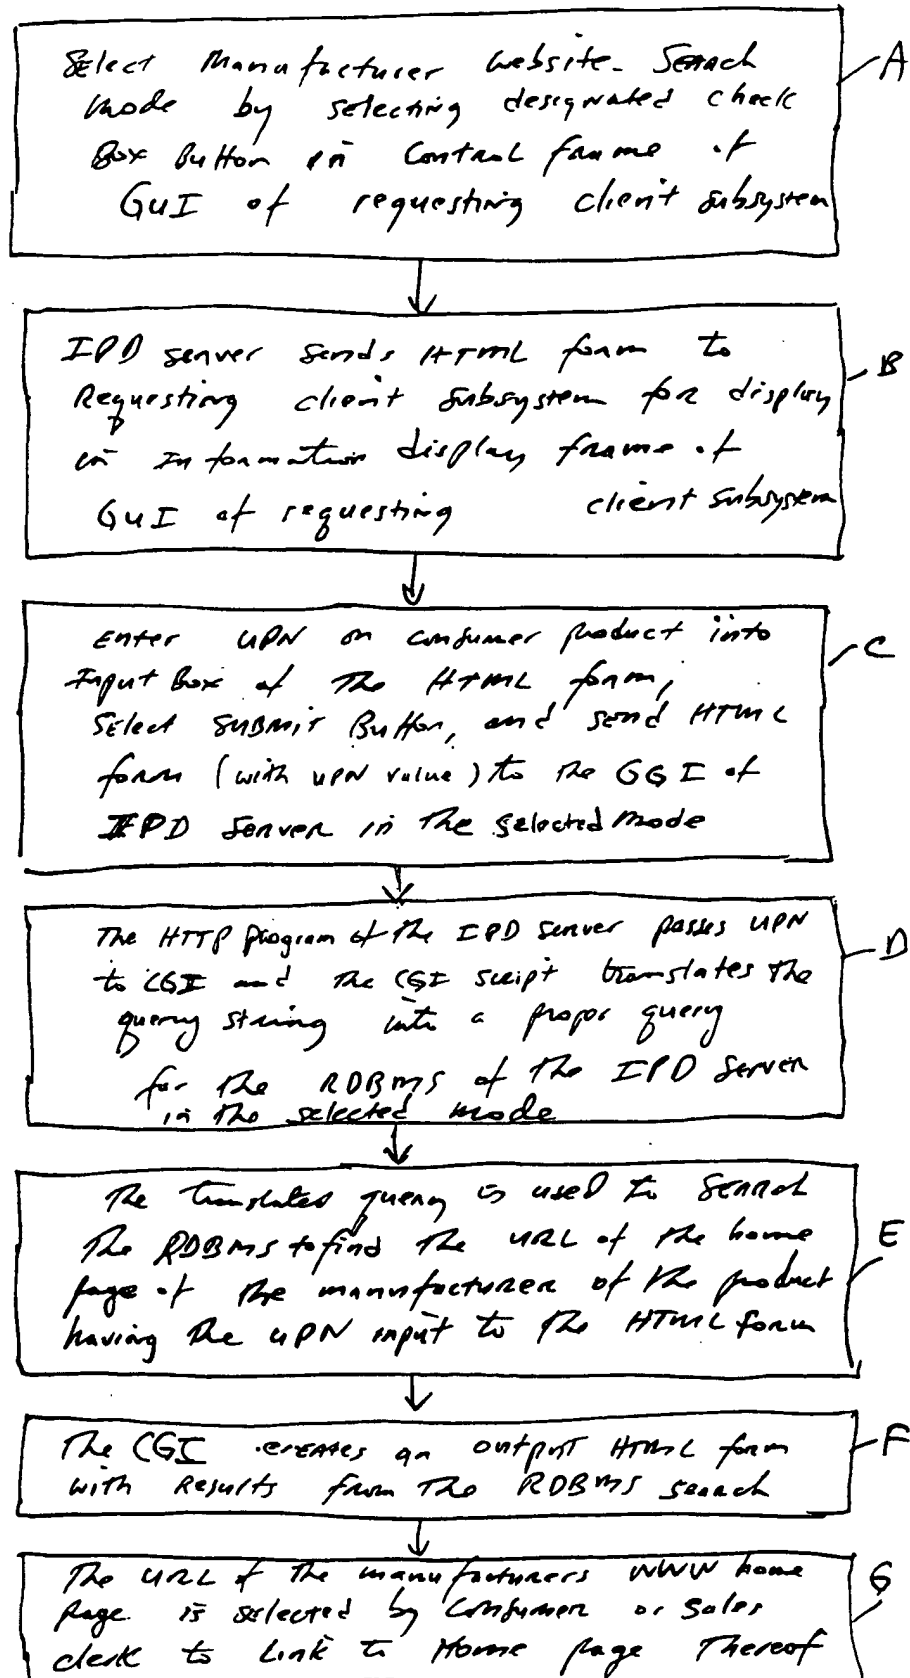 Select Manufacturer Website-Search
Mode by selecting designated check
Box Button in Control frame of
GUI of requesting client subsystem
A
IPD server sends HTML form to
Requesting client subsystem for display
in Information display frame of
GUI of requesting client subsystem
B
Enter UPN on consumer product into
Input Box of the HTML form,
Select SUBMIT Button, and send HTML
form (with UPN value) to the GGI of
IPD Server in the selected mode
C
The HTTP program of the IPD server passes UPN
to CGI and the CGI script translates the
query string into a propor query
for the RDBMS of the IPD Server
in the selected mode
D
The translated query is used to Search
The RDBMS to find the URL of the home
page of the manufacturer of the product
having the UPN input to the HTML form
E
The CGI creates an output HTML form
with Results from the RDBMS search
F
The URL of the manufacturers WWW home
Page is selected by Consumer or Sales
clerk to Link to Home page Thereof
G